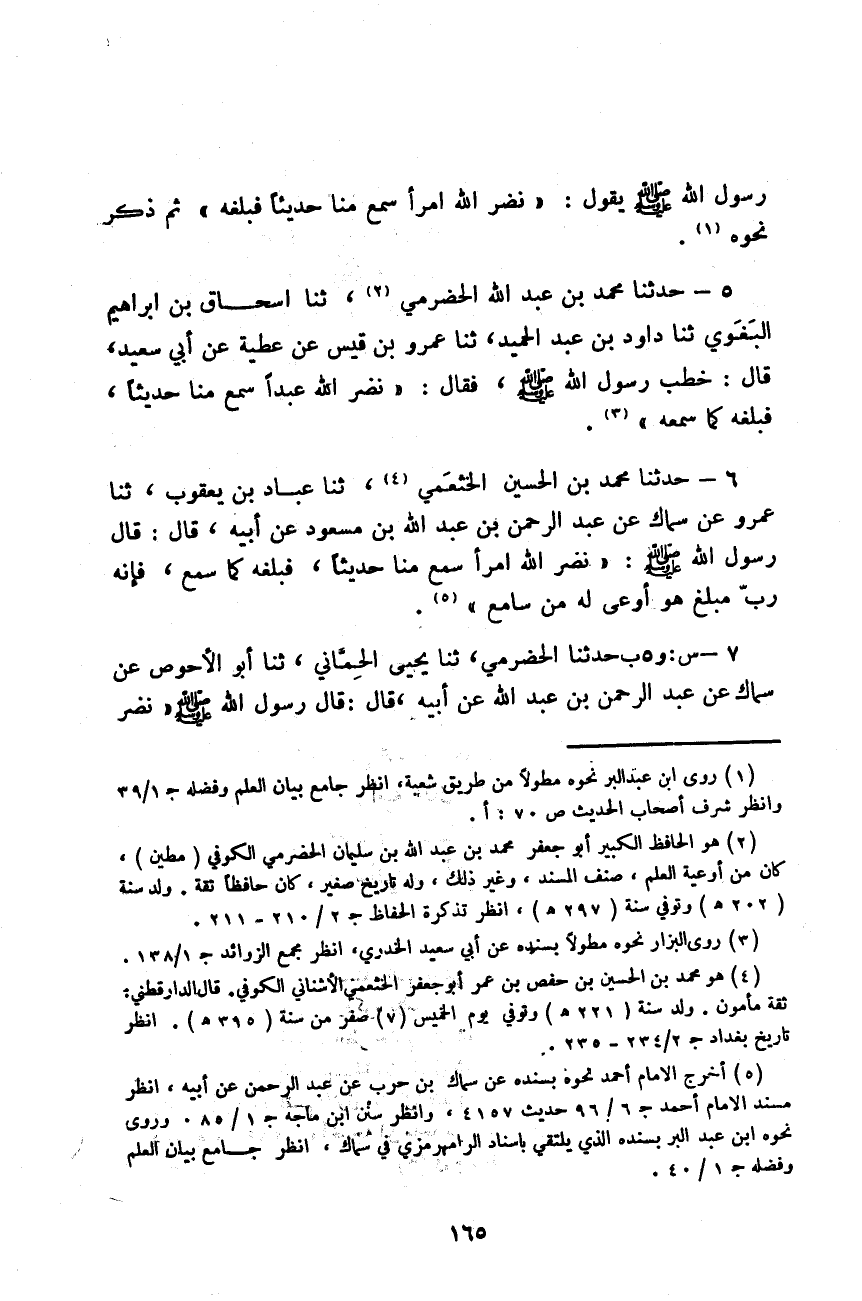 رسول الله ﷺ يقول : « نضر الله امرأ سمع منا حديثاً فبلغه » ثم ذكر
نحوه (١) .
٥ – حدثنا محمد بن عبد الله الحضرمي (٢) ، ثنا اسحاق بن ابراهيم
البَغَوي ثنا داود بن عبد الحميد، ثنا عمرو بن قيس عن عطية عن أبي سعيد،
قال : خطب رسول الله ﷺ ، فقال : « نضر الله عبداً سمع منا حديثاً ،
فبلغه كما سمعه » (٣) .
٦ – حدثنا محمد بن الحسين الخثعَمي (٤) ، ثنا عباد بن يعقوب ، ثنا
عمرو عن سماك عن عبد الرحمن بن عبد الله بن مسعود عن أبيه ، قال : قال
رسول الله ﷺ : « نضر الله امرأ سمع منا حديثاً ، فبلغه كما سمع ، فإنه
ربّ مبلغ هو أوعى له من سامع » (٥) .
٧ –س:و٥ب حدثنا الحضرمي، ثنا يحيى الحِمَّاني ، ثنا أبو الأحوص عن
سماك عن عبد الرحمن بن عبد الله عن أبيه ،قال :قال رسول الله ﷺ « نضر
(١) روى ابن عبدالبر نحوه مطولاً من طريق شعبة، انظر جامع بيان العلم وفضله جـ ٣٩/١
وانظر شرف أصحاب الحديث ص ٧٠ : أ .
(٢) هو الحافظ الكبير أبو جعفر محمد بن عبد الله بن سليمان الحضرمي الكوفي ( مطين ) ،
كان من أوعية العلم ، صنف المسند ، وغير ذلك ، وله تاريخ صغير ، كان حافظاً ثقة . ولد سنة
( ٢٠٢ هـ ) وتوفي سنة ( ٢٩٧ هـ ) ، انظر تذكرة الحفاظ جـ ٢ / ٢١٠ – ٢١١ .
(٣) روى البزار نحوه مطولاً بسنده عن أبي سعيد الخدري، انظر مجمع الزوائد جـ ١٣٨/١ .
(٤) هو محمد بن الحسين بن حفص بن عمر أبو جعفر الخثعمي الأشناني الكوفي. قال الدارقطني:
ثقة مأمون . ولد سنة ( ٢٢١ هـ ) وتوفي يوم الخميس (٧) صفر من سنة ( ٣٩٥ هـ ) . انظر
تاريخ بغداد جـ ٢٣٤/٢ – ٢٣٥ .
(٥) أخرج الامام أحمد نحوه بسنده عن سماك بن حرب عن عبد الرحمن عن أبيه ، انظر
مسند الامام أحمد جـ ٦ / ٩٦ حديث ٤١٥٧ ، وانظر سنن ابن ماجة جـ ١ / ٨٥ . وروى
نحوه ابن عبد البر بسنده الذي يلتقي باسناد الرامهرمزي في سماك ، انظر جامع بيان العلم
وفضله جـ ١ / ٤٠ .
١٦٥